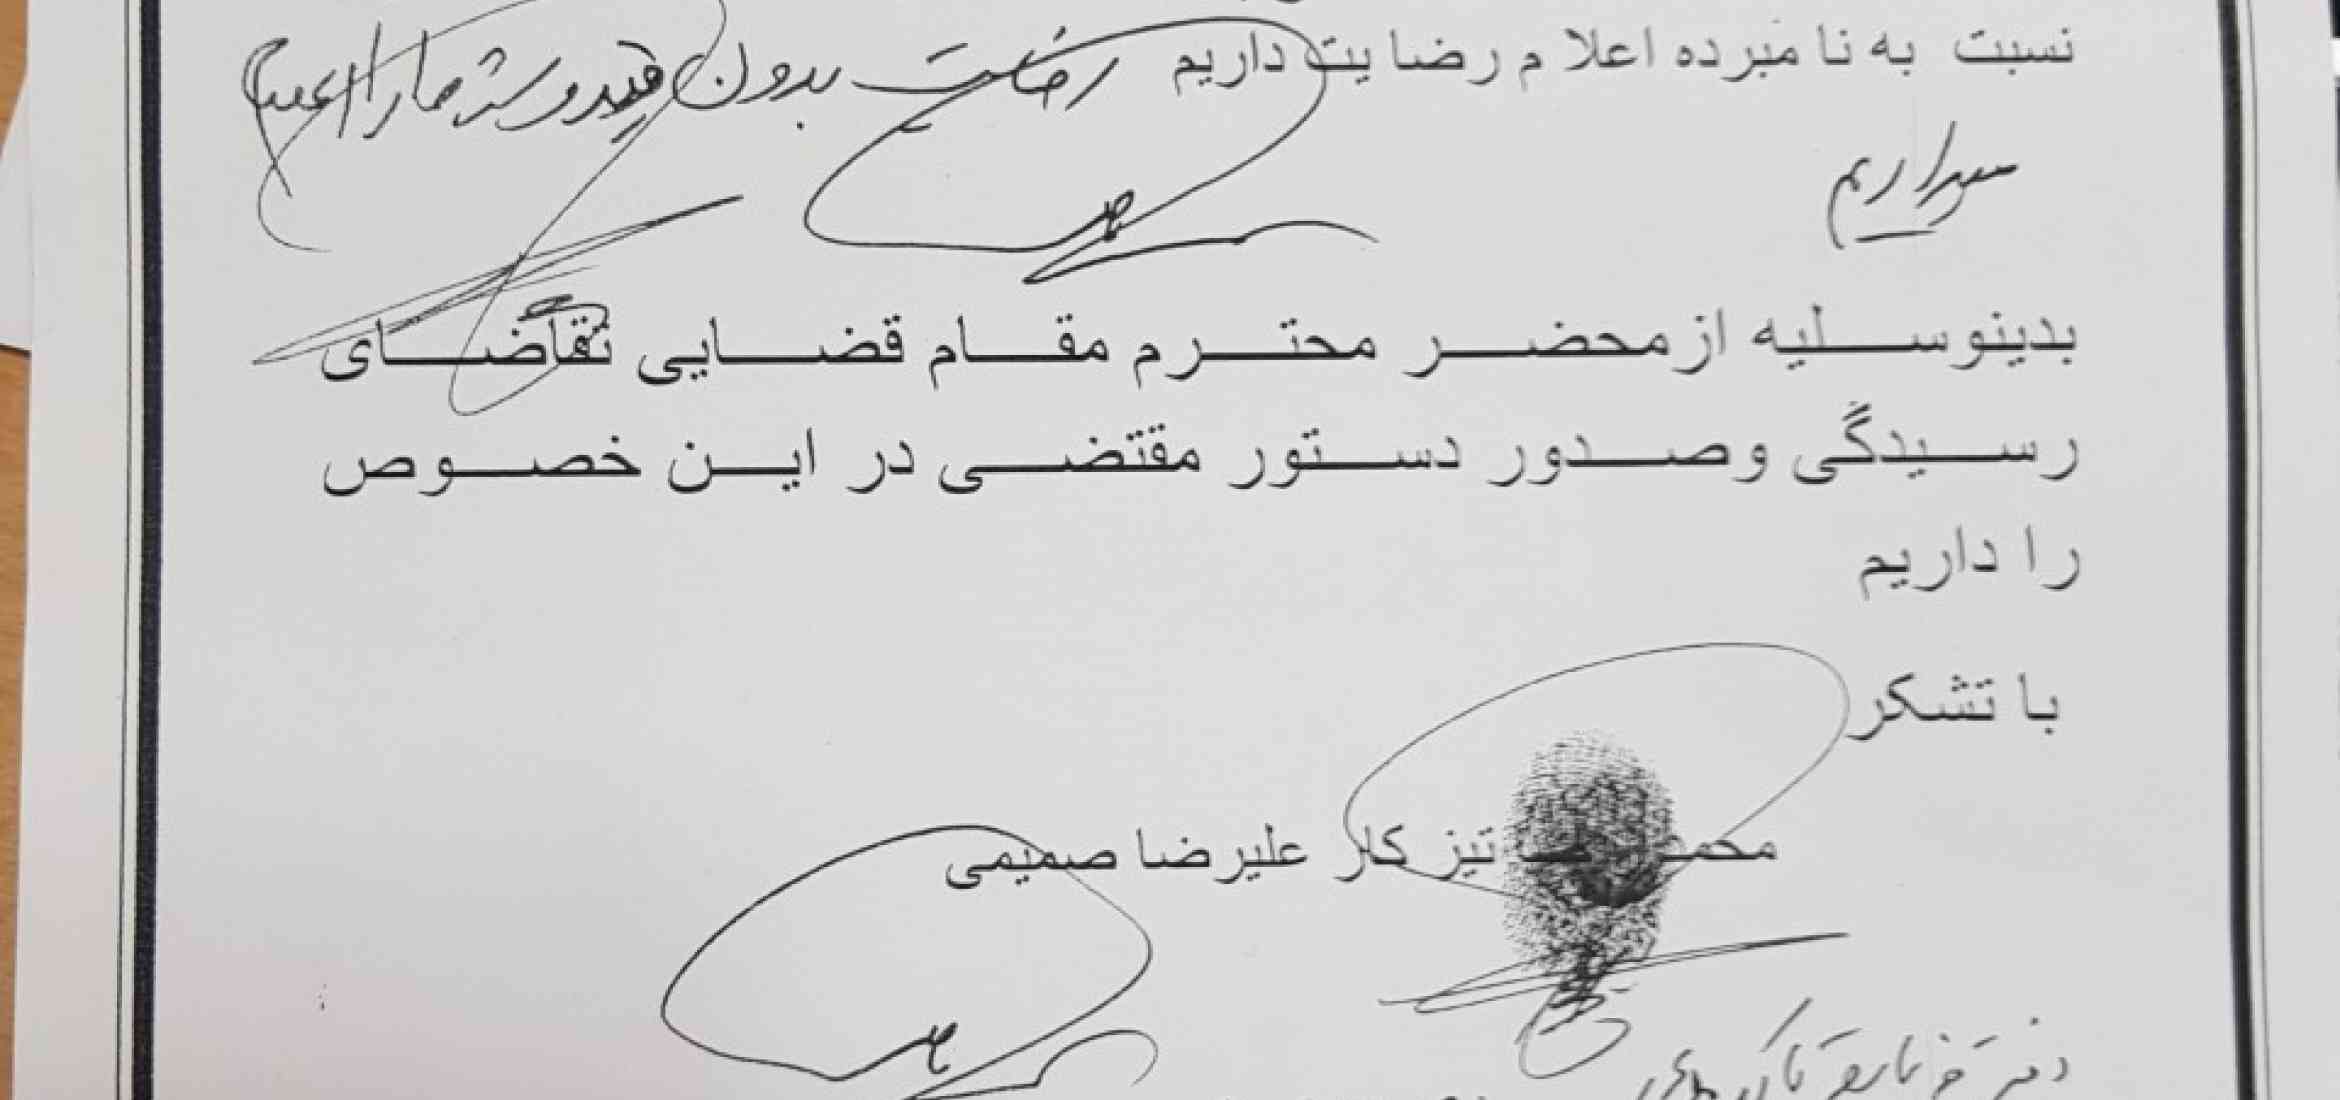 نسبت به نا مبرده اعلا م رضا یت داریم رضایت بدون قید و شرط ما را اعلام
میداریم
بدینوسلیه ازمحضر محترم مقام قضایی تقاضای
رسیدگی وصدور دستور مقتضی در این خصوص
را داریم
با تشکر
تیز کار علیرضا صمیمی
دفتر